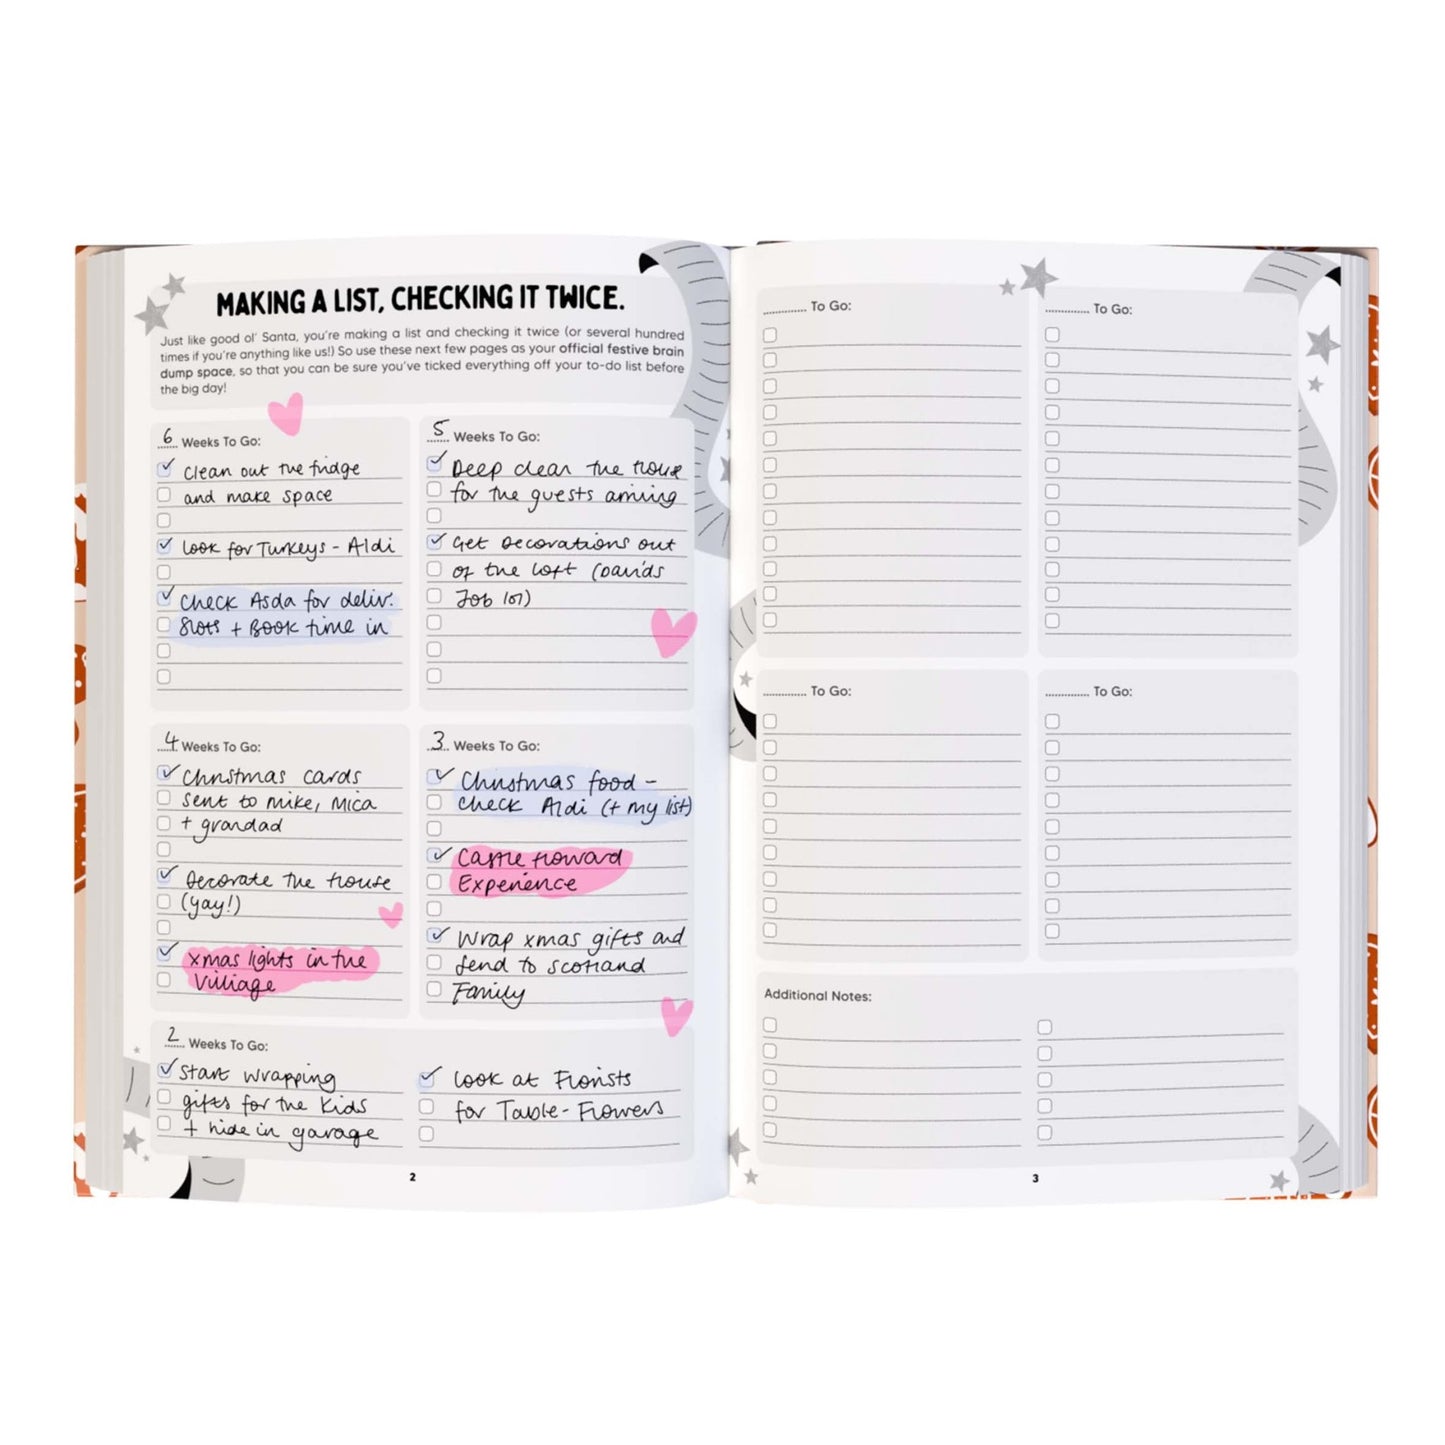 MAKING A LIST, CHECKING IT TWICE.
Just like good ol' Santa, you're making a list and checking it twice (or several hundred
times if you're anything like us!) So use these next few pages as your official festive brain
dump space, so that you can be sure you've ticked everything off your to-do list before
the big day!
6 Weeks To Go:
Clean out the fridge
and make space
Look for Turkeys - Aldi
Check Asda for deliv.
Slots + Book time in
5 Weeks To Go:
Deep clean the house
for the guests arriving
Get Decorations out
of the loft (Davids
Job lol)
4 Weeks To Go:
Christmas cards
sent to mike, mica
+ grandad
Decorate the house
(yay!)
xmas lights in the
Village
3 Weeks To Go:
Christmas food -
check Aldi (+ my list)
Castle Howard
Experience
Wrap xmas gifts and
send to Scotland
Family
2 Weeks To Go:
Start wrapping
gifts for the kids
+ hide in garage
Look at Florists
for Table - Flowers
2
To Go:
To Go:
To Go:
To Go:
Additional Notes:
3